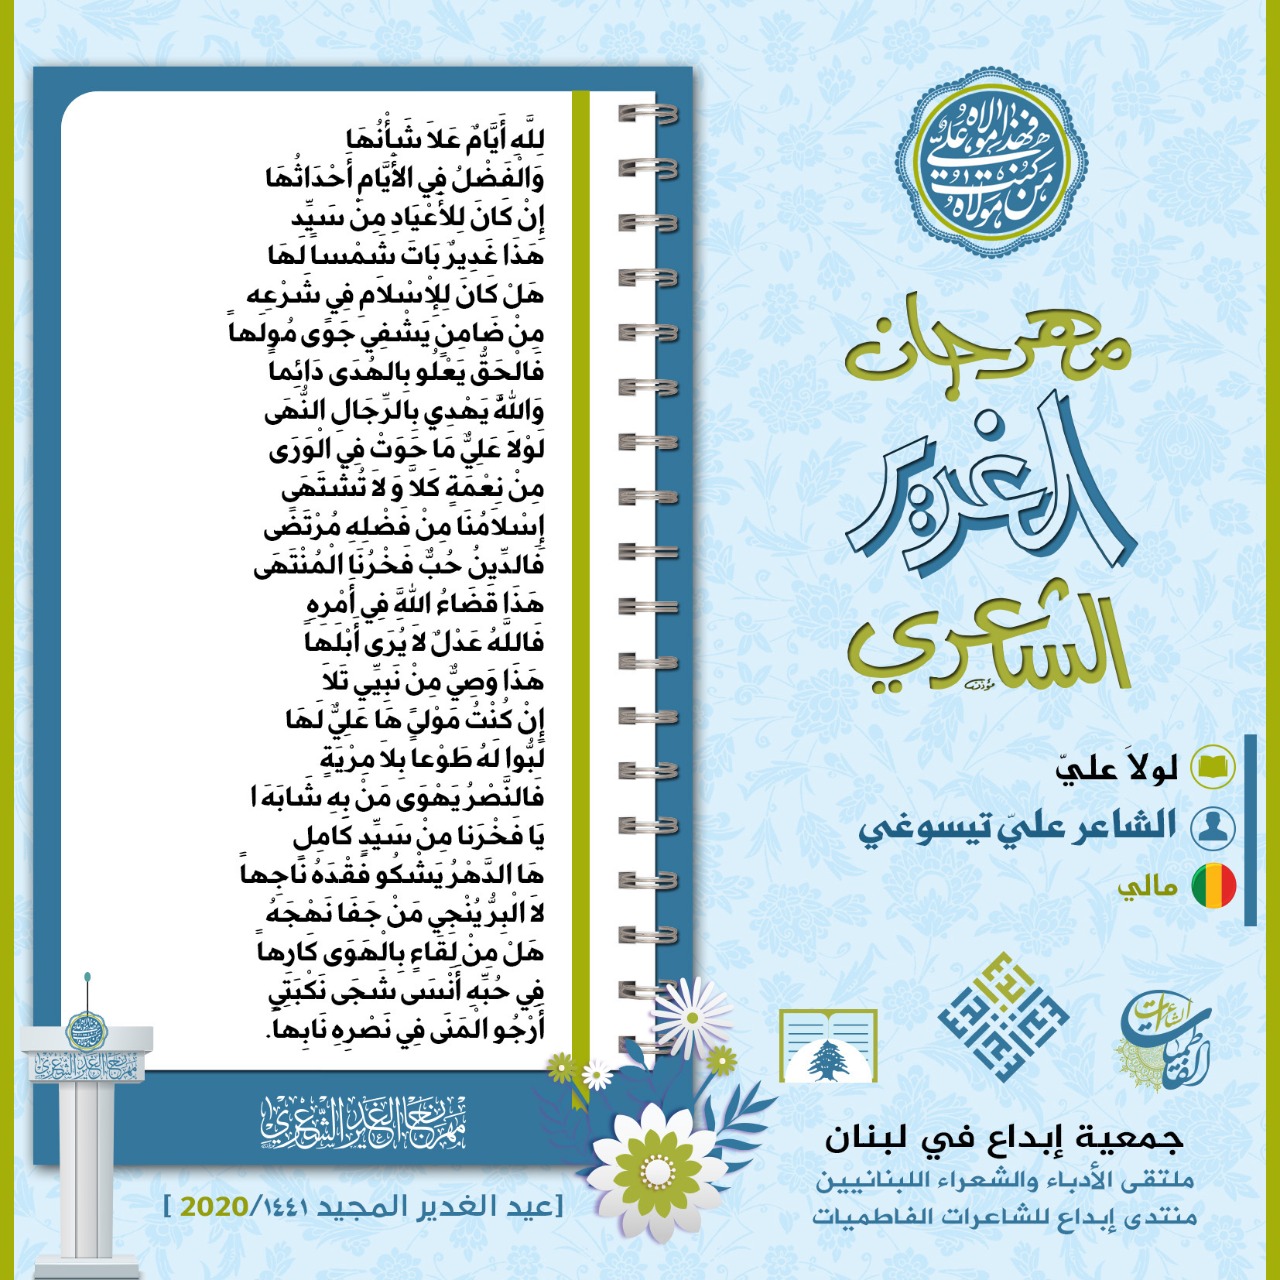 لِلَّهِ أَيَّامٌ عَلاَ شَأْنُهَا
وَالْفَضْلُ فِي الأَيَّامِ أَحْدَاثُهَا
إِنْ كَانَ لِلأَعْيَادِ مِنْ سَيِّدٍ
هَذَا غَدِيرٌ بَاتَ شَمْساً لَهَا
هَلْ كَانَ لِلإِسْلاَمِ فِي شَرْعِهِ
مِنْ ضَامِنٍ يَشْفِي جَوًى مُولَهاً
فَالْحَقُّ يَعْلُو بِالهُدَى دَائِماً
وَاللهُ يَهْدِي بِالرِّجَالِ النُّهَى
لَوْلاَ عَلِيٌّ مَا حَوَتْ فِي الْوَرَى
مِنْ نِعْمَةٍ كَلاَّ وَ لاَ تُشْتَهَى
إِسْلاَمُنَا مِنْ فَضْلِهِ مُرْتَضًى
فَالدِّينُ حُبٌّ فَخْرُنَا الْمُنْتَهَى
هَذَا قَضَاءُ اللهِ فِي أَمْرِهِ
فَاللَّهُ عَدْلٌ لاَ يُرَى أَبْلَهَاً
هَذَا وَصِيٌّ مِنْ نَبِيِّي تَلاَ
إِنْ كُنْتُ مَوْلىً هَا عَلِيٌّ لَهَا
لَبُّوا لَهُ طَوْعاً بِلاَ مِرْيَةٍ
فَالنَّصْرُ يَهْوَى مَنْ بِهِ شَابَهَ ا
يَا فَخْرَنا مِنْ سَيِّدٍ كَامِلٍ
هَا الدَّهْرُ يَشْكُو فَقْدَهُ نَاجِهاً
لاَ الْبِرُّ يُنْجِي مَنْ جَفَا نَهْجَهُ
هَلْ مِنْ لِقَاءٍ بِالْهَوَى كَارِهاً
فِي حُبِّهِ أَنْسَى شَجَى نَكْبَتِي
أَرْجُو الْمَنَى فِي نَصْرِهِ نَابِهاً.
مهرجان الغدير الشعري
[عيد الغدير المجيد ١٤٤١/2020 ]
من كنت مولاه فهذا علي مولاه
مهرجان
الغدير
الشعري
لولاَ عليّ
الشاعر عليّ تيسوغي
مالي
إبداع
الشاعرات
الفاطميات
جمعية إبداع في لبنان
ملتقى الأدباء والشعراء اللبنانيين
منتدى إبداع للشاعرات الفاطميات